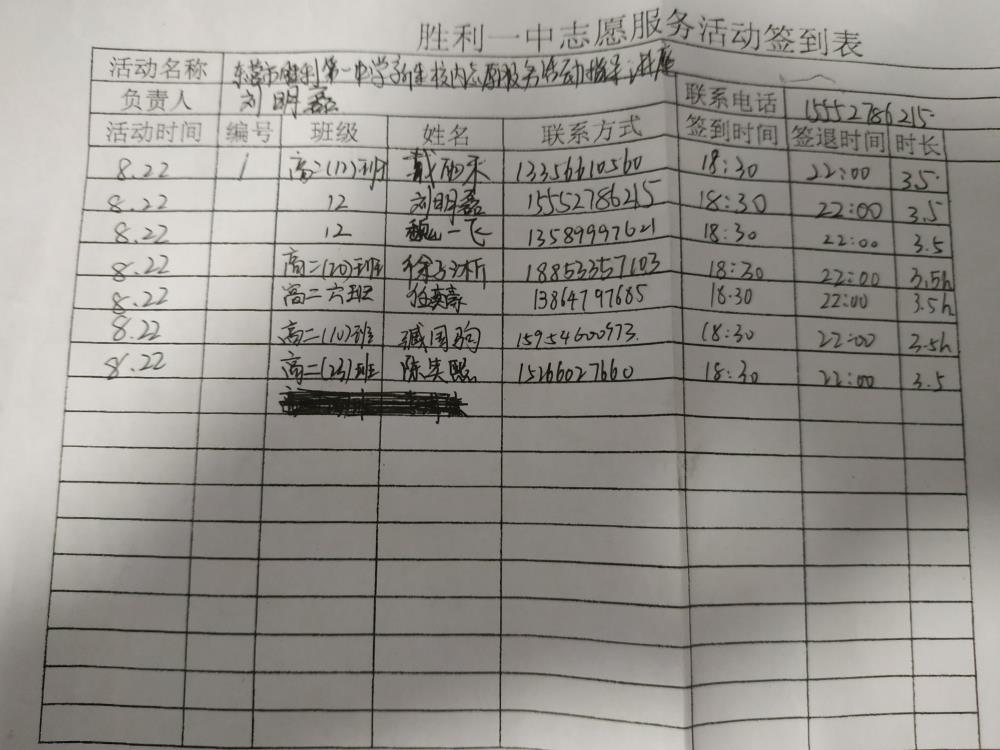 胜利一中志愿服务活动签到表
活动名称 东营市胜利第一中学新生校内志愿服务活动指导讲座
负责人 刘明磊 联系电话 15552786215
活动时间 编号 班级 姓名 联系方式 签到时间 签退时间 时长
8.22 1 高二(12)班 戴雨禾 13356610560 18:30 22:00 3.5
8.22 12 刘明磊 15552786215 18:30 22:00 3.5
8.22 12 魏一飞 13589997621 18:30 22:00 3.5
8.22 高二(20)班 徐 析 18853357103 18:30 22:00 3.5h
8.22 高二六班 任奕豪 13864797685 18:30 22:00 3.5h
8.22 高二(10)班 臧国驹 15954600973 18:30 22:00 3.5h
8.22 高二(23)班 陈笑熙 15266027660 18:30 22:00 3.5